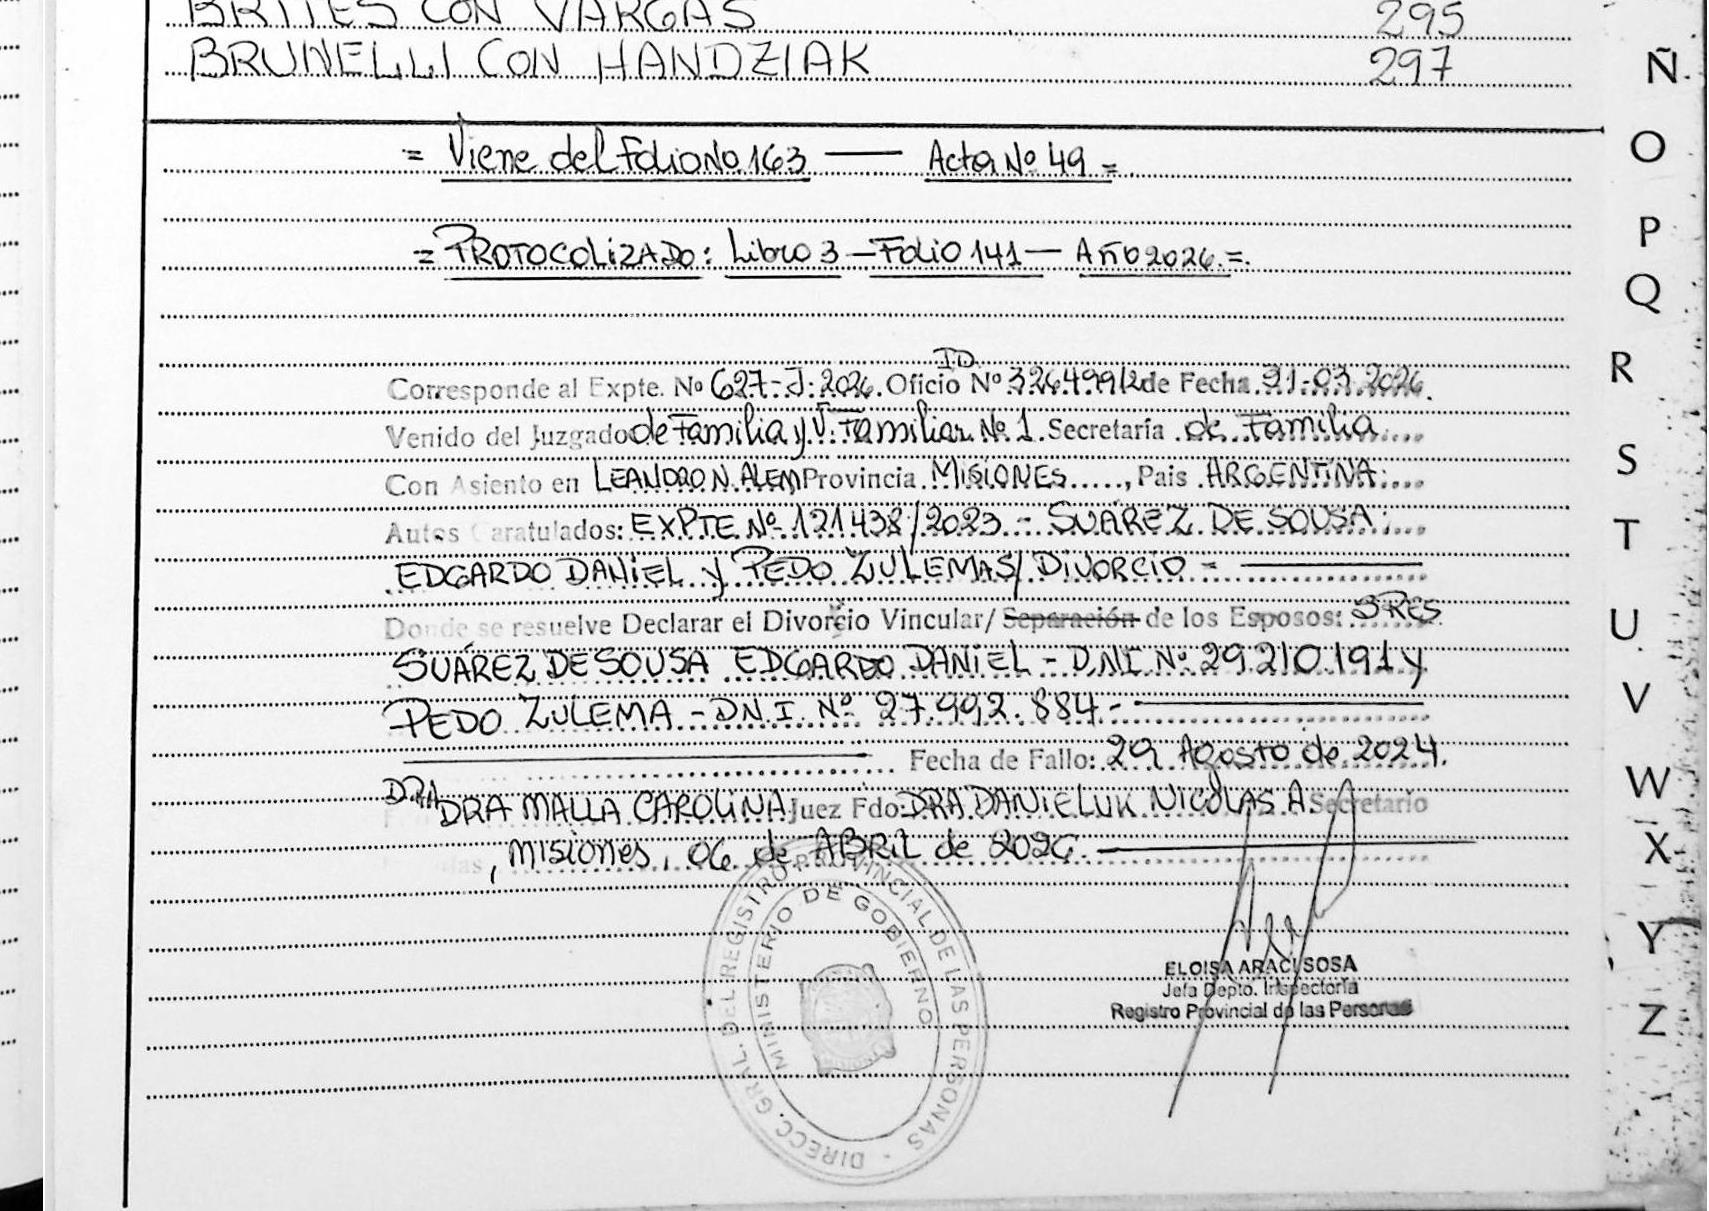 BRITES CON VARGAS 295
BRUNELLI CON HANDZIAK 297
= Viene del Folio No 163 — Acta Nº 49 =
= PROTOCOLIZADO: Libro 3 — Folio 141 — Año 2026. =.
ID
Corresponde al Expte. Nº 627-J-2026. Oficio Nº 3264991/2 de Fecha 31-03-2026.
Venido del Juzgado de Familia y V. Familiar Nº 1. Secretaría de Familia
Con Asiento en LEANDRO N. ALEM Provincia MISIONES ....., Pais ARGENTINA
Autos Caratulados: EXPTE Nº 121438/2023 - SUÁREZ DE SOUSA
EDGARDO DANIEL y PEDO ZULEMA S/ DIVORCIO -
Donde se resuelve Declarar el Divorcio Vincular/ Separación de los Esposos: SRES
SUÁREZ DE SOUSA EDGARDO DANIEL - D.N.I. Nº 29.210.191 y
PEDO ZULEMA - D.N.I. Nº 27.992.884.-
Fecha de Fallo: 29 Agosto de 2024.
DRA
DRA MALLA CAROLINA Juez Fdo DRA DANIELUK NICOLAS A Secretario
, Misiones, 06 de ABRIL de 2026.
DIRECC. GRAL. DEL REGISTRO PROVINCIAL DE LAS PERSONAS -
MINISTERIO DE GOBIERNO
ELOISA ARACI SOSA
Jefa Depto. Inspectoría
Registro Provincial de las Personas
Ñ
O
P
Q
R
S
T
U
V
W
X
Y
Z